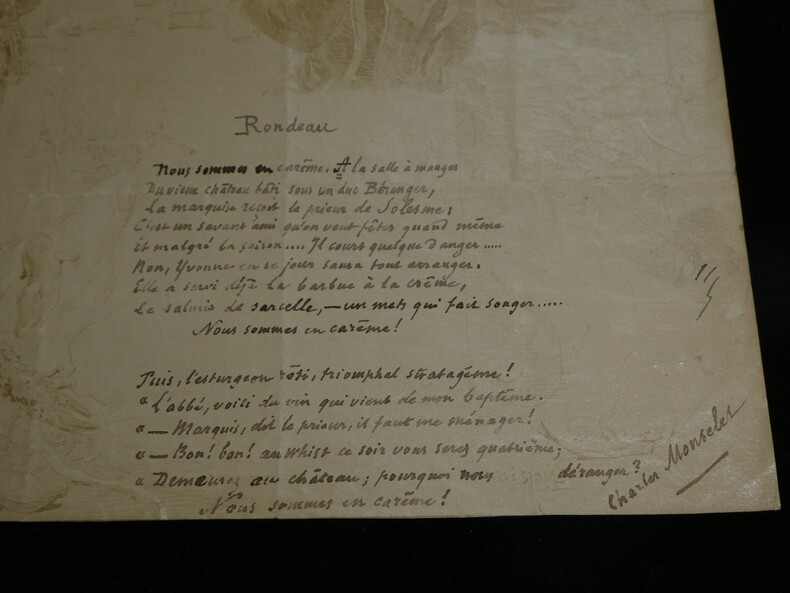 Rondeau
Nous sommes en carême. A la salle à manger
Du vieux château bâti sous un duc Bérenger,
La marquise reçoit le prieur de Solesme;
C'est un savant ami qu'on veut fêter quand même
Et malgré la saison.... Il court quelque danger.....
Non, Yvonne en ce jour saura tout arranger.
Elle a servi déjà la barbue à la crème,
Le salmis de sarcelle, — un mets qui fait songer.....
Nous sommes en carême!
Puis, l'esturgeon rôti, triomphal stratagème!
« L'abbé, voilà du vin qui vient de mon baptême.
« — Marquis, dit le prieur, il faut me ménager!
« — Bon! bon! au whist ce soir vous serez quatrième;
« Demeurez au château; pourquoi nous déranger?
Nous sommes en carême!
Charles Monselet